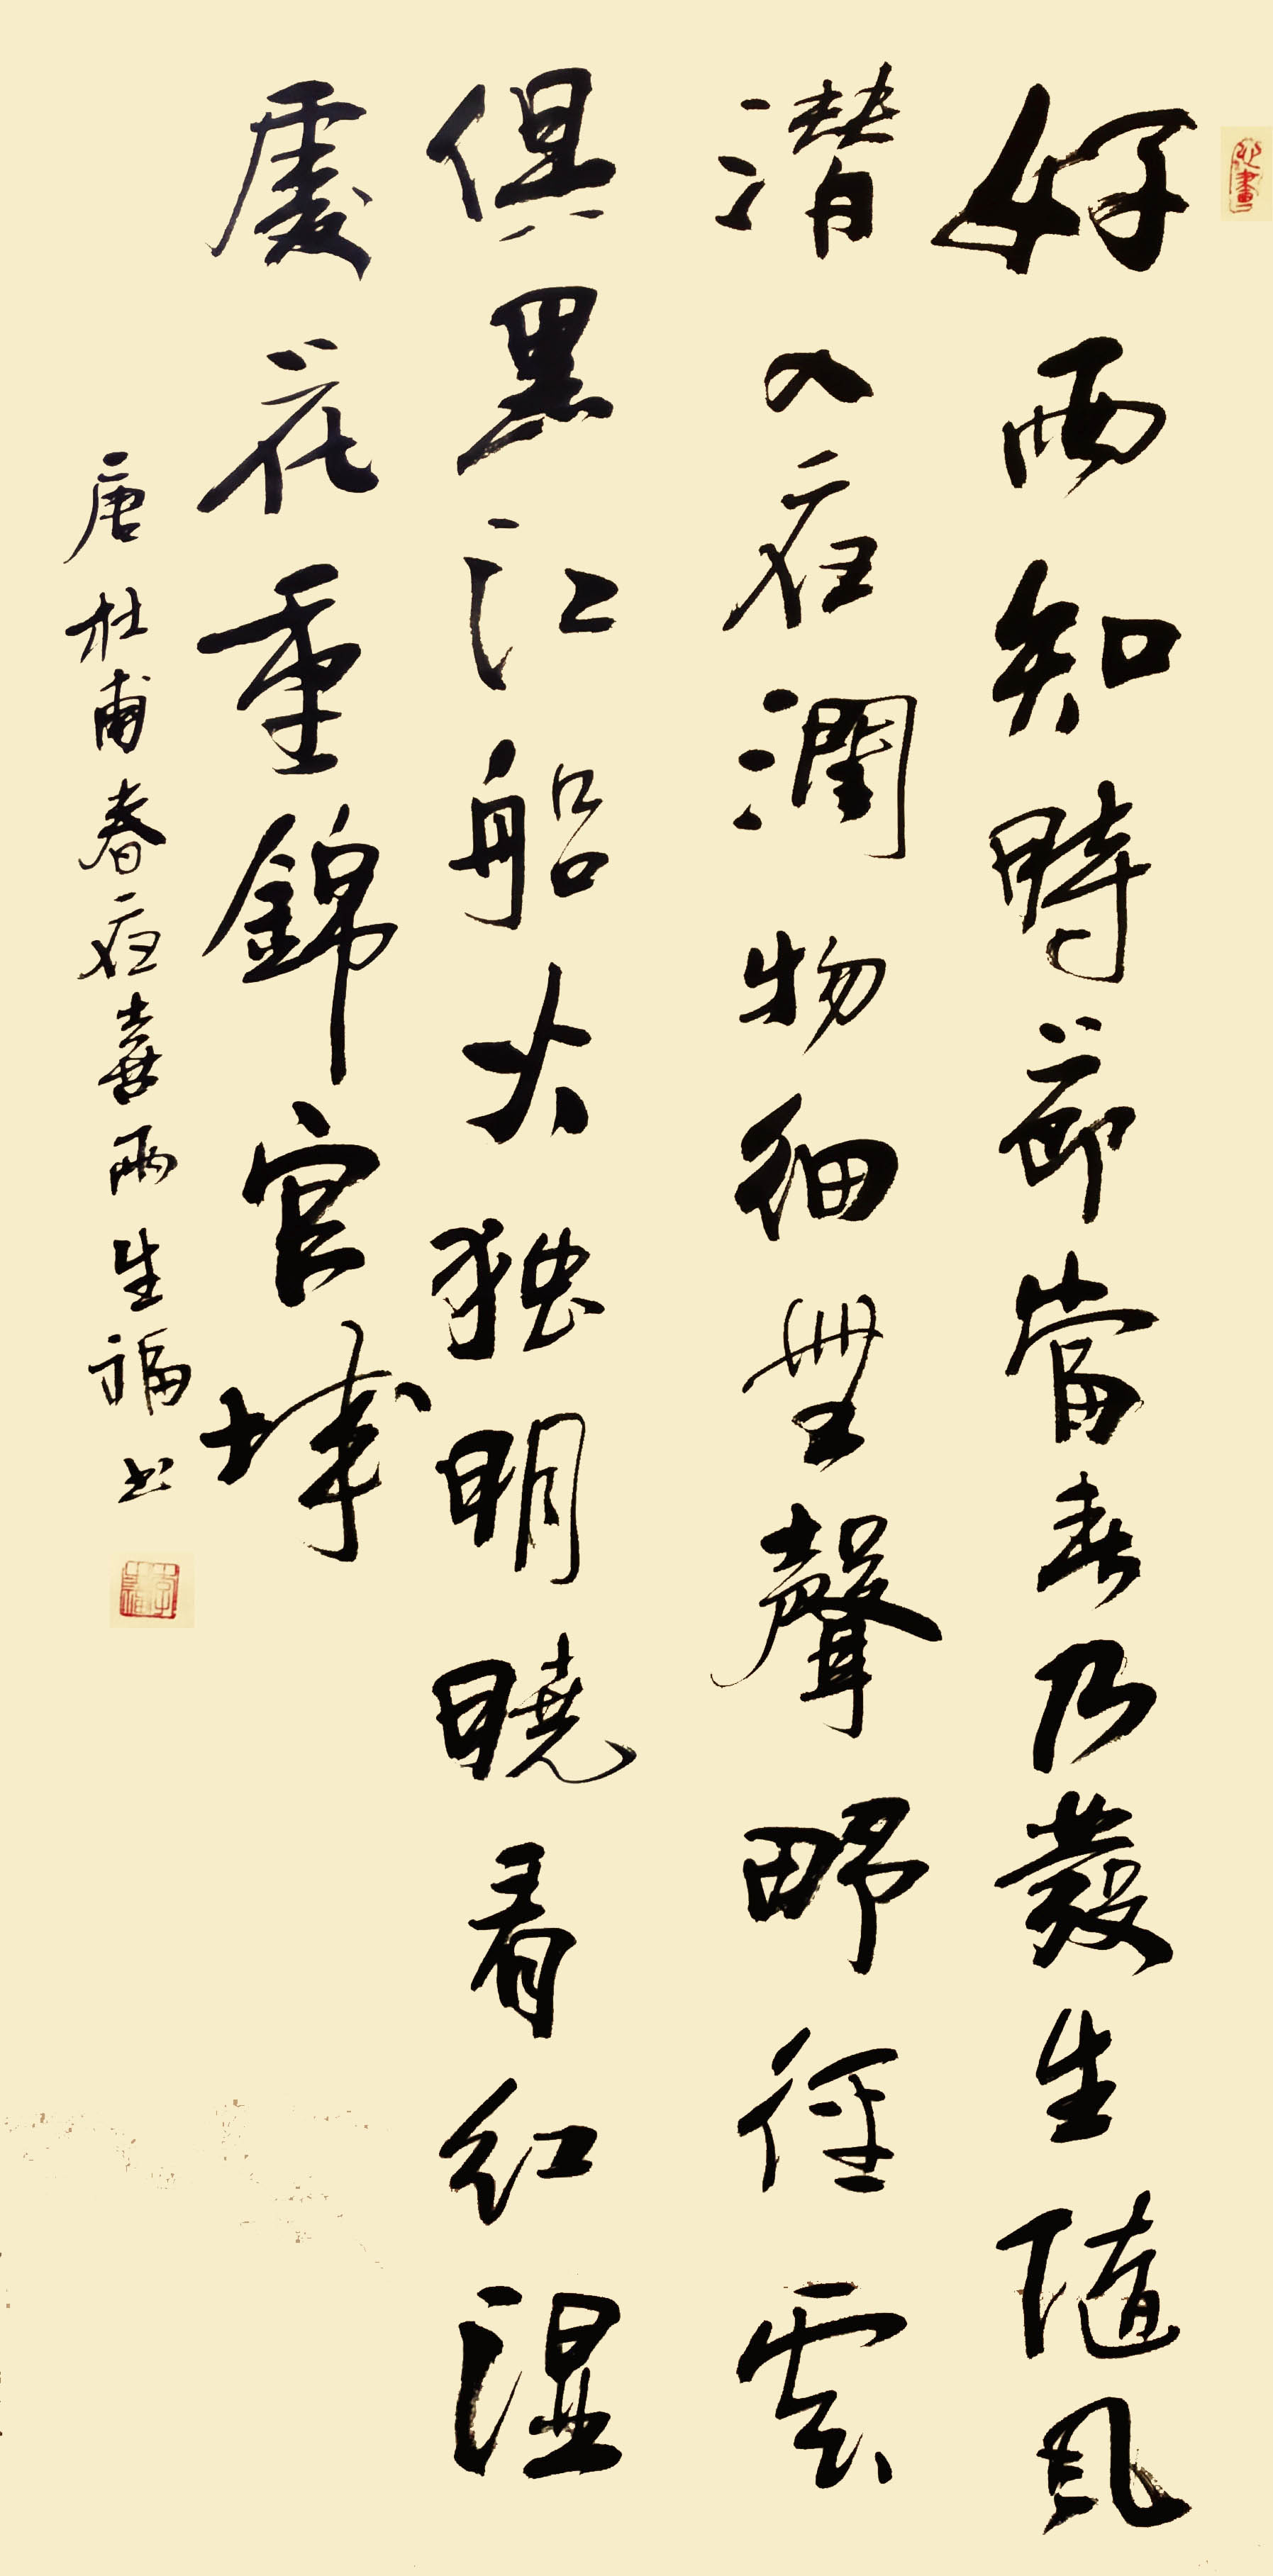 好雨知時節當春乃發生隨風
潛入夜潤物細無聲野徑雲
俱黑江船火独明曉看紅濕
處花重錦官城
唐杜甫春夜喜雨生福书